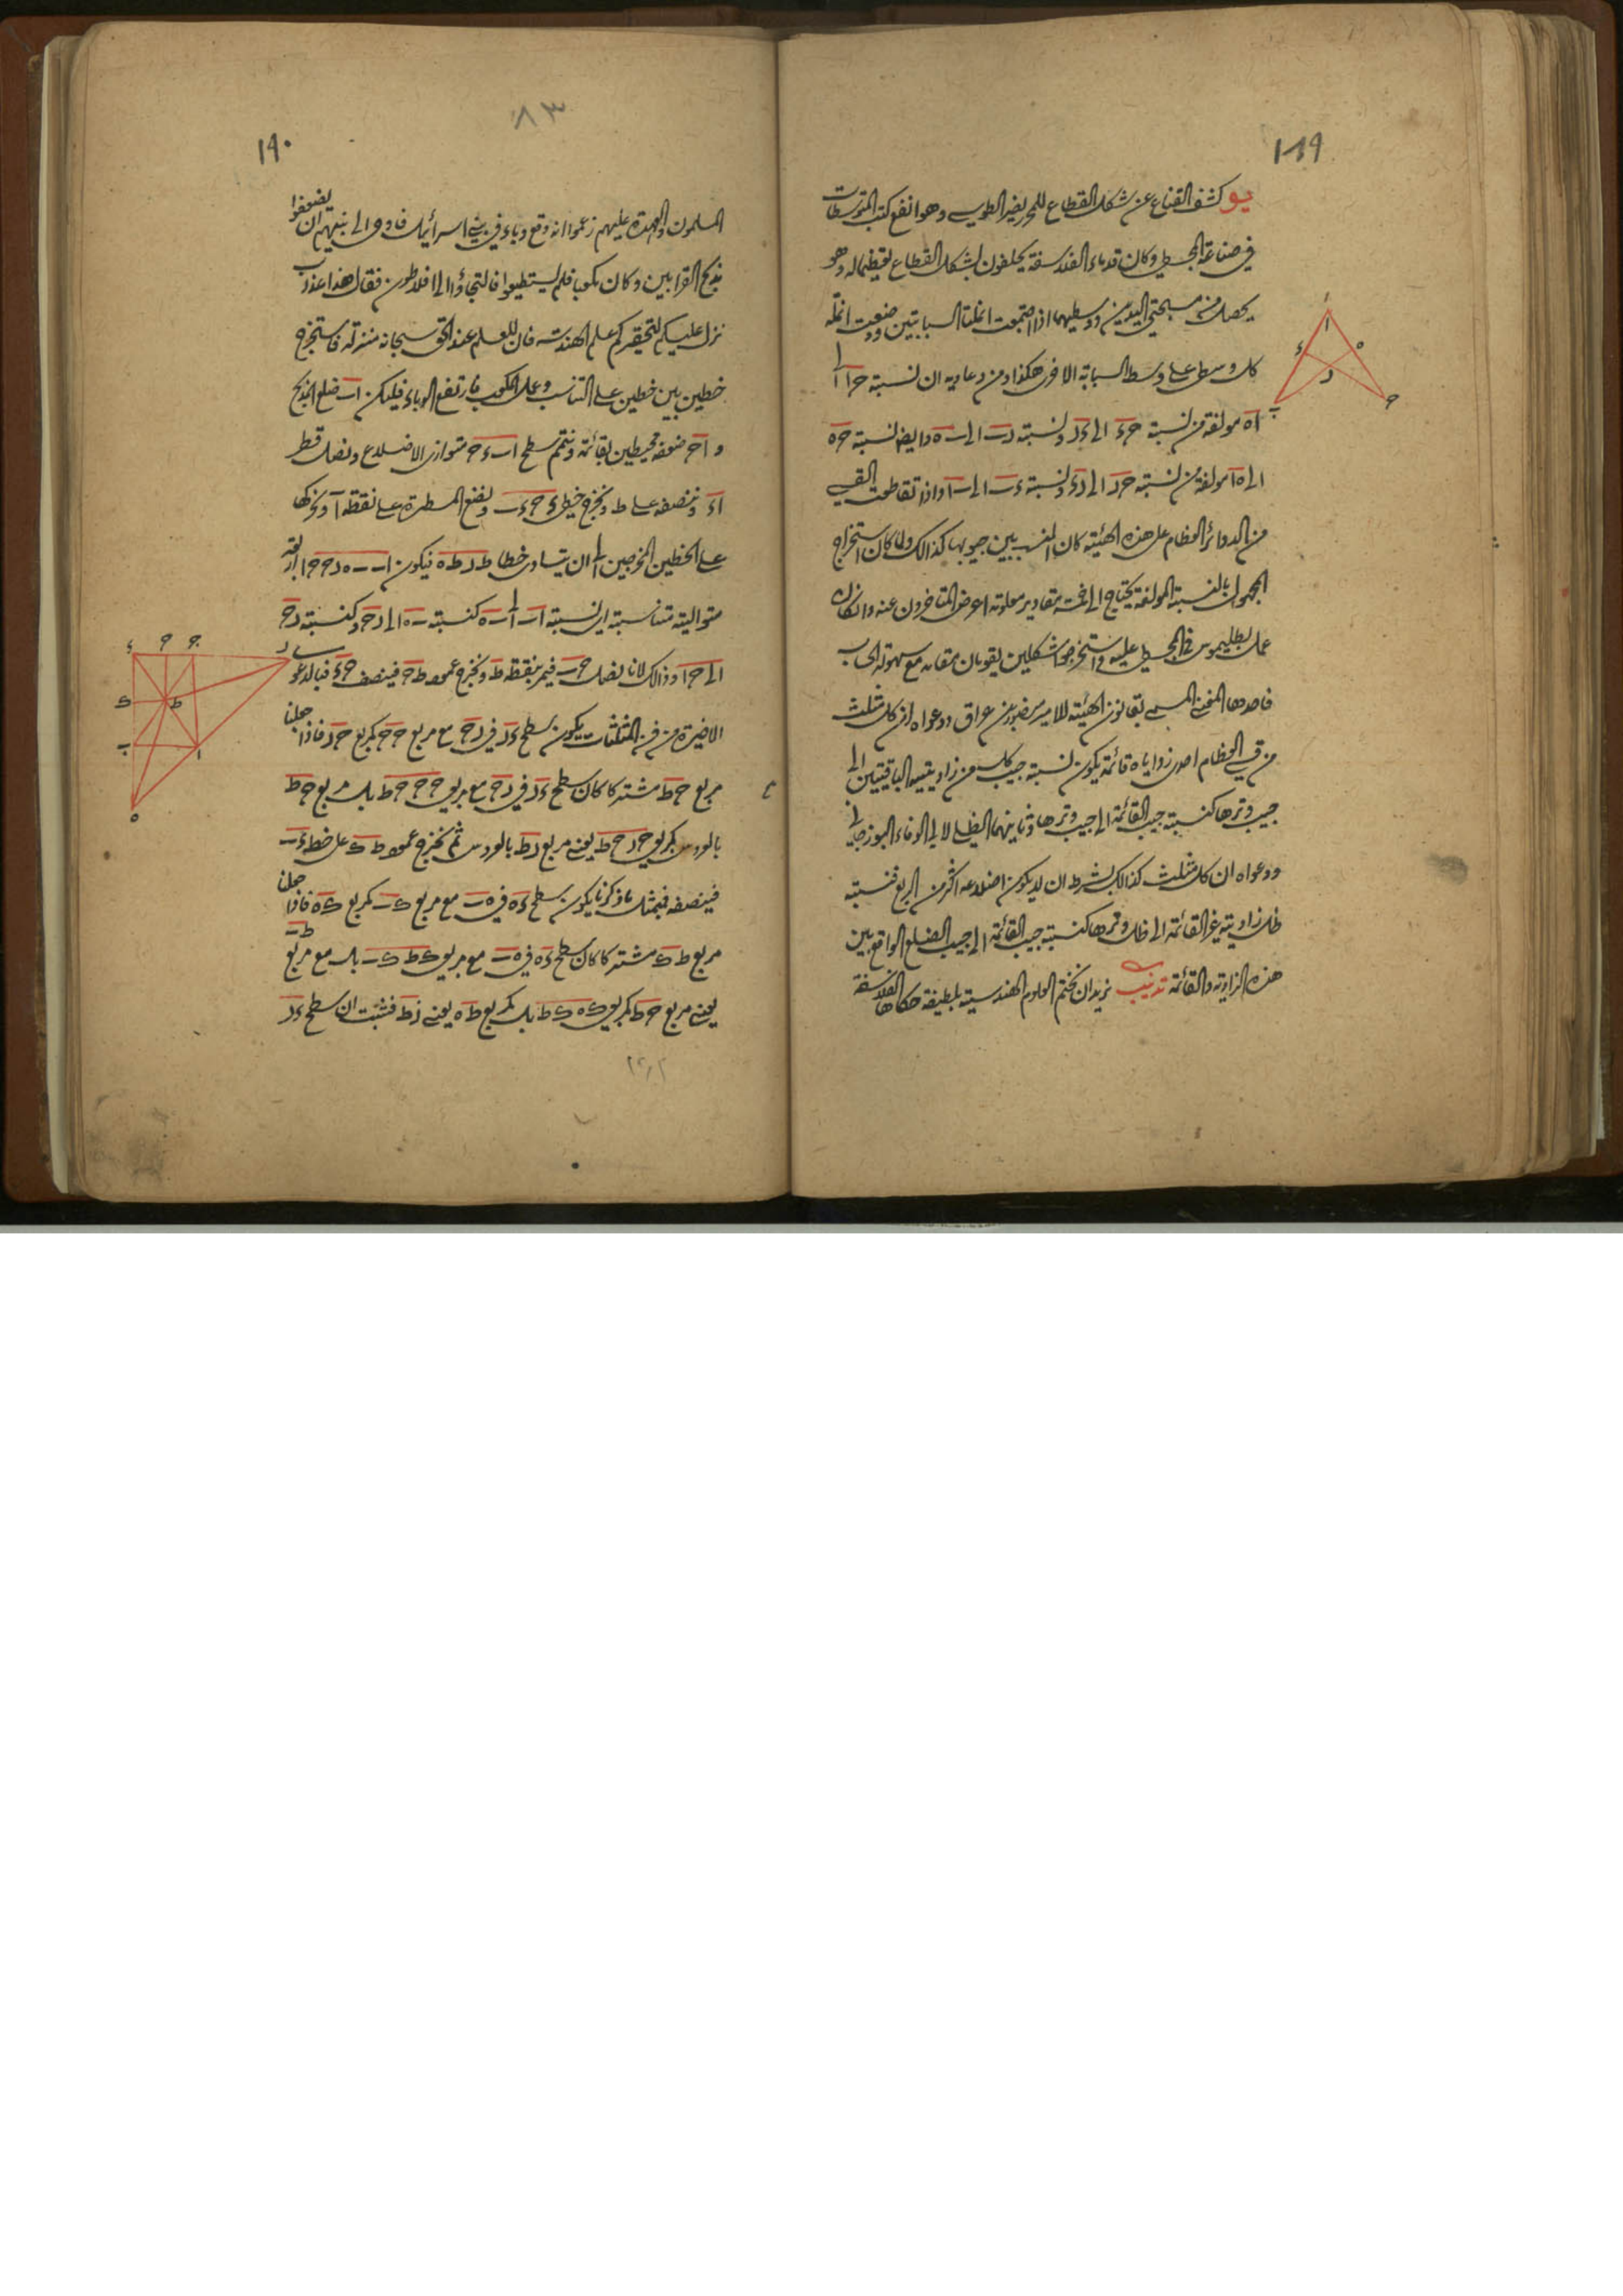 ١٨٩
يو كشف القناع عن شكل القطاع للمحرر نصير الطوسي وهو انفع كتب المتوسطات
في صناعة المجسطي وكان قدماء الفلاسفة يحلفون بشكل القطاع تعظيما له وهو
يحصل من مسبحتي اليدين ووسطيهما اذا اجتمعت انملتا السبابتين ووضعت انملة
كل وسطى على وسط السبابة الاخرى هكذا ومن دعاويه ان نسبة حا الى
اه مولفة من نسبة حء الى ءر ونسبة رب الى به وايضا نسبة حه
الى ها مولفة من نسبة حر الى رء ونسبة ءب الى با واذا تقاطعت القسي
من الدوائر العظام على هذه الهيئة كان النسب بين جيوبها كذالك ولما كان استخراج
المجهول بالنسبة المولفة يحتاج الى خمسة مقادير معلومة اعرض المتاخرون عنه وان كان
عمل بطليموس في المجسطي عليه واستخرجوا شكلين يقومان مقامه مع سهولة الحساب
فاحدهما المغني المسمى بقانون الهيئة للامير منصور بن عراق ودعواه ان كل مثلث
من قسي العظام احدى زواياه قائمة يكون نسبة جيب كل من زاويتيه الباقيتين الى
جيب وترها كنسبة جيب القائمة الى جيب وترها وثانيهما الظلي لابي الوفاء البوزجاني
ودعواه ان كل مثلث كذالك بشرط ان لا يكون اضلاعه اكثر من الربع فنسبة
ظل زاوية غير القائمة الى ظل وترها كنسبة جيب القائمة الى جيب الضلع الواقع بين
هذه الزاوية والقائمة تذنيب نريد ان نختم العلوم الهندسية بلطيفة حكاها الفلاسفة
ا
ء ه
ر
ب ح
٨٣
١٩٠
المسلمون والعهدة عليهم زعموا انه وقع وباء في بني اسرائيل فاوحى الى نبيهم ان يضعفوا
مذبح القرابين وكان مكعبا فلم يستطيعوا فالتجاؤا الى افلاطون فقال هذا عذاب
نزل عليكم لتحقيركم علم الهندسة فان للعلم عند الحق سبحانه منزلة فاستخرج
خطين بين خطين على التناسب وعمل المكعب فارتفع الوباء فليكن اب ضلع المذبح
و اح ضعفه محيطين بقائمة ونتمم سطح اب ءح متوازي الاضلاع ونصل قطر
اء وننصفه على ط ونخرج خطي ءح ءب ونضع المسطرة على نقطة ا ونحركها
على الخطين المخرجين الى ان يتساوى خطا طر طه فيكون اب به رح حا اربعة
متوالية متناسبة اي نسبة اب الى به كنسبة به الى رح وكنسبة رح
الى حا وذالك لانا نصل حب فيمر بنقطة ط ونخرج عمود طج فينصف حء فبالدعوى
الاخيرة من فن المثلثات يكون سطح ءر في رح مع مربع جح كمربع جر فاذا جعلنا
مربع جط مشتركا كان سطح ءر في رح مع مربعي جح جط بل مربع حط
بالعروس كمربعي جر جط يعني مربع رط بالعروس ثم نخرج عمود طك على خط ءب
فينصفه فبمثل ما ذكرنا يكون سطح ءه في هب مع مربع كب كمربع كه فاذا جعلنا
مربع طك مشتركا كان سطح ءه في هب مع مربعي كط كب بل مع مربع طب
يعني مربع حط كمربعي كه كط بل كمربع طه يعني رط فثبت ان سطح ءر
ر ح ج ء
ط ك
ا ب
ه